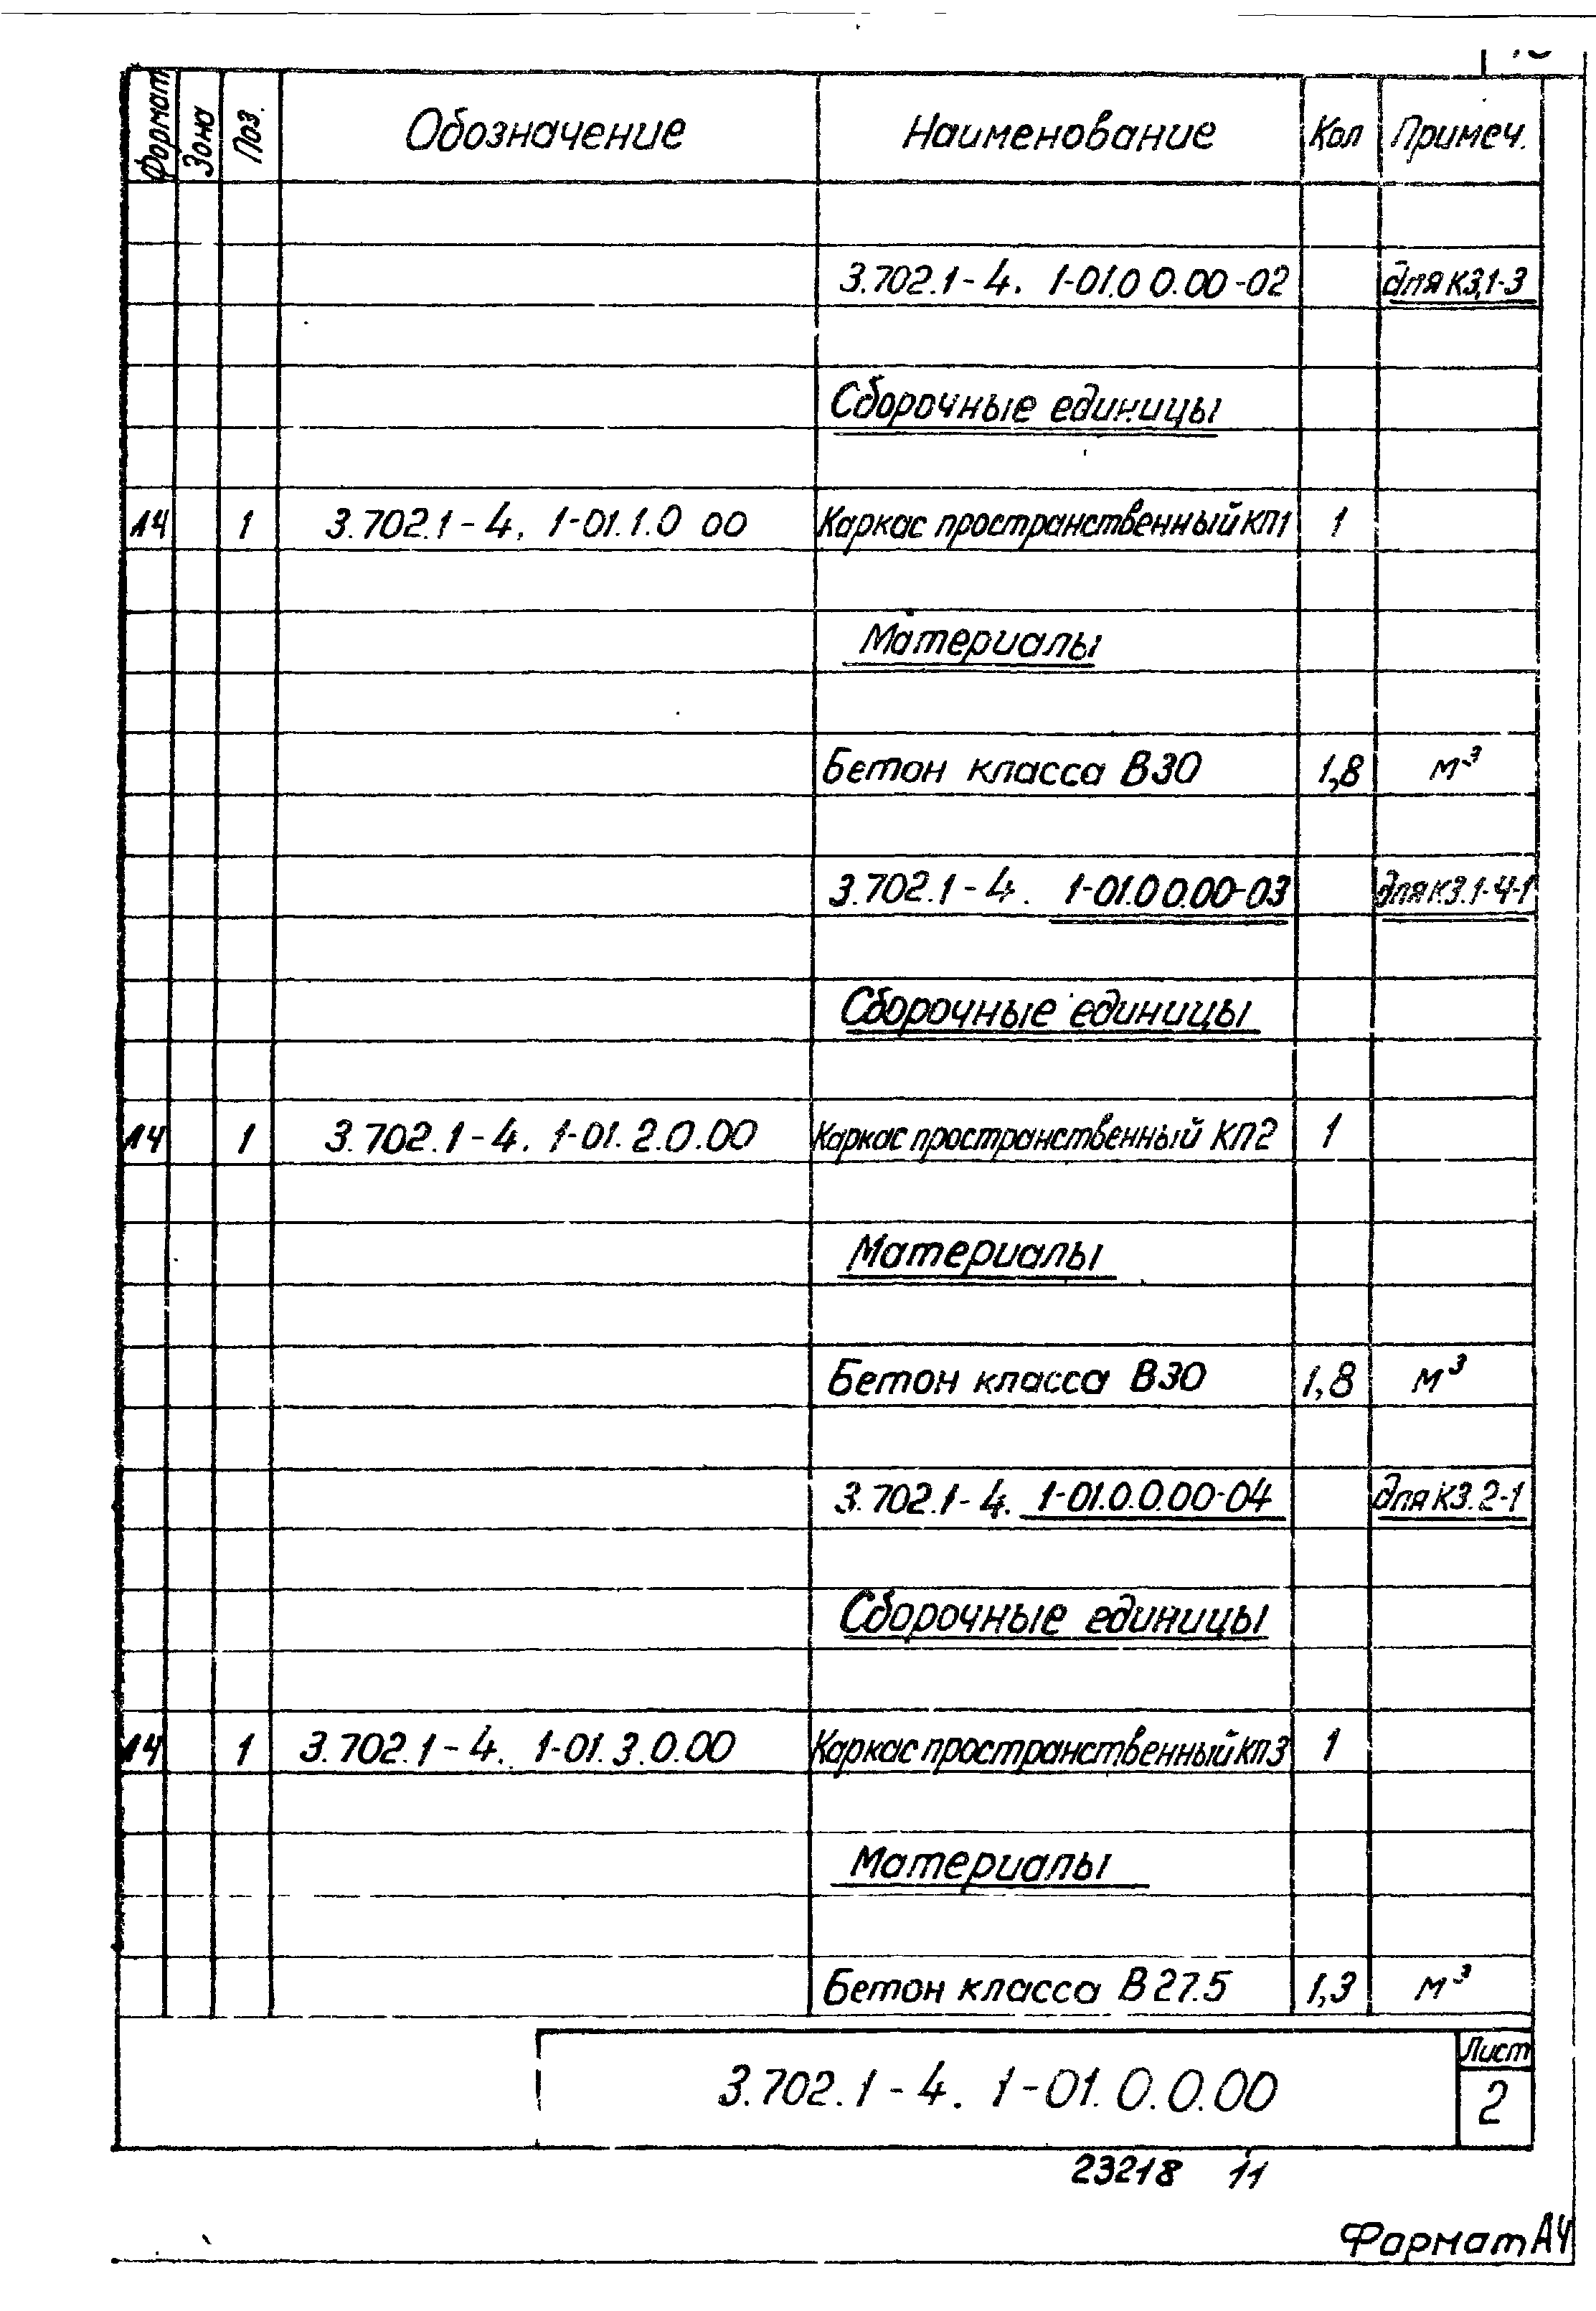 Формат Зона Поз. Обозначение Наименование Кол Примеч.
3.702.1-4. 1-01.0 0.00-02 для К3.1-3
Сборочные единицы
А4 1 3.702.1-4. 1-01.1.0 00 Каркас пространственный КП1 1
Материалы
Бетон класса В30 1,8 м³
3.702.1-4. 1-01.0 0.00-03 для К3.1-4-1
Сборочные единицы
А4 1 3.702.1-4. 1-01.2.0.00 Каркас пространственный КП2 1
Материалы
Бетон класса В30 1,8 м³
3.702.1-4. 1-01.0.0.00-04 для К3.2-1
Сборочные единицы
А4 1 3.702.1-4. 1-01.3.0.00 Каркас пространственный КП3 1
Материалы
Бетон класса В27.5 1,3 м³
3.702.1-4. 1-01.0.0.00 Лист
2
23218 11
Формат А4